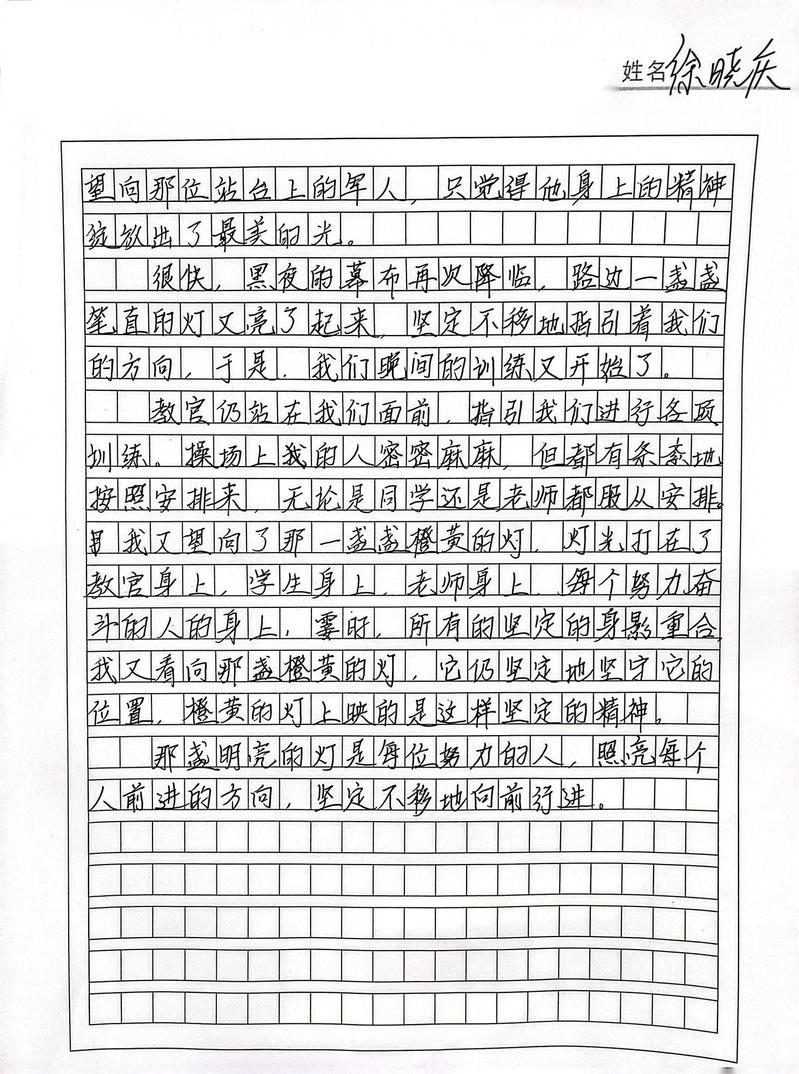 姓名徐晓庆
望向那位站台上的军人，只觉得他身上的精神
绽放出了最美的光。
很快，黑夜的幕布再次降临，路边一盏盏
笔直的灯又亮了起来，坚定不移地指引着我们
的方向，于是，我们晚间的训练又开始了。
教官仍站在我们面前，指引我们进行各项
训练。操场上我的人密密麻麻，但都有条紊地
按照安排来，无论是同学还是老师都服从安排。
我又望向了那一盏盏橙黄的灯，灯光打在了
教官身上，学生身上，老师身上，每个努力奋
斗的人的身上，霎时，所有的坚定的身影重合，
我又看向那盏橙黄的灯，它仍坚定地坚守它的
位置，橙黄的灯上映的是这样坚定的精神。
那盏明亮的灯是每位努力的人，照亮每个
人前进的方向，坚定不移地向前行进。